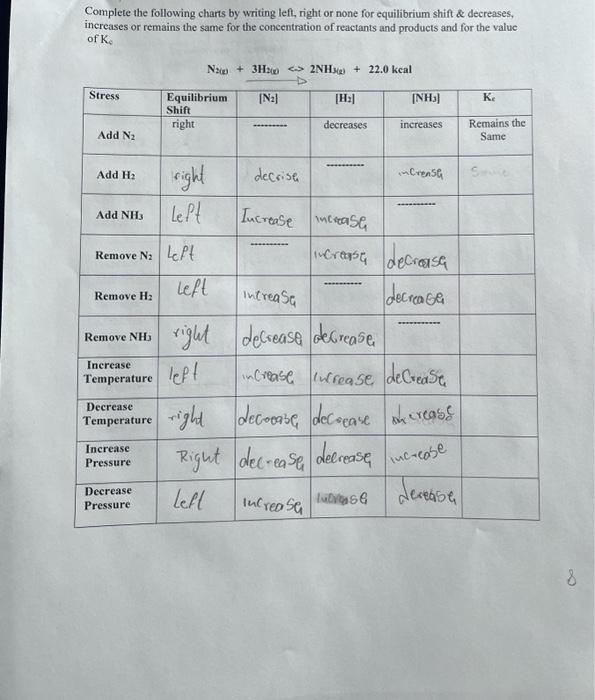 Complete the following charts by writing left, right or none for equilibrium shift & decreases,
increases or remains the same for the concentration of reactants and products and for the value
of Kc
N2(g) + 3H2(g) <=> 2NH3(g) + 22.0 kcal
Stress Equilibrium Shift [N2] [H2] [NH3] Kc
Add N2 right -------- decreases increases Remains the Same
Add H2 right decrise -------- increase Same
Add NH3 Left Increase increase --------
Remove N2 Left -------- increase decrease
Remove H2 Left increase -------- decrease
Remove NH3 right decrease decrease --------
Increase Temperature left increase increase decrease
Decrease Temperature right decrease decrease increase
Increase Pressure Right decrease decrease increase
Decrease Pressure Left increase increase decrease
8